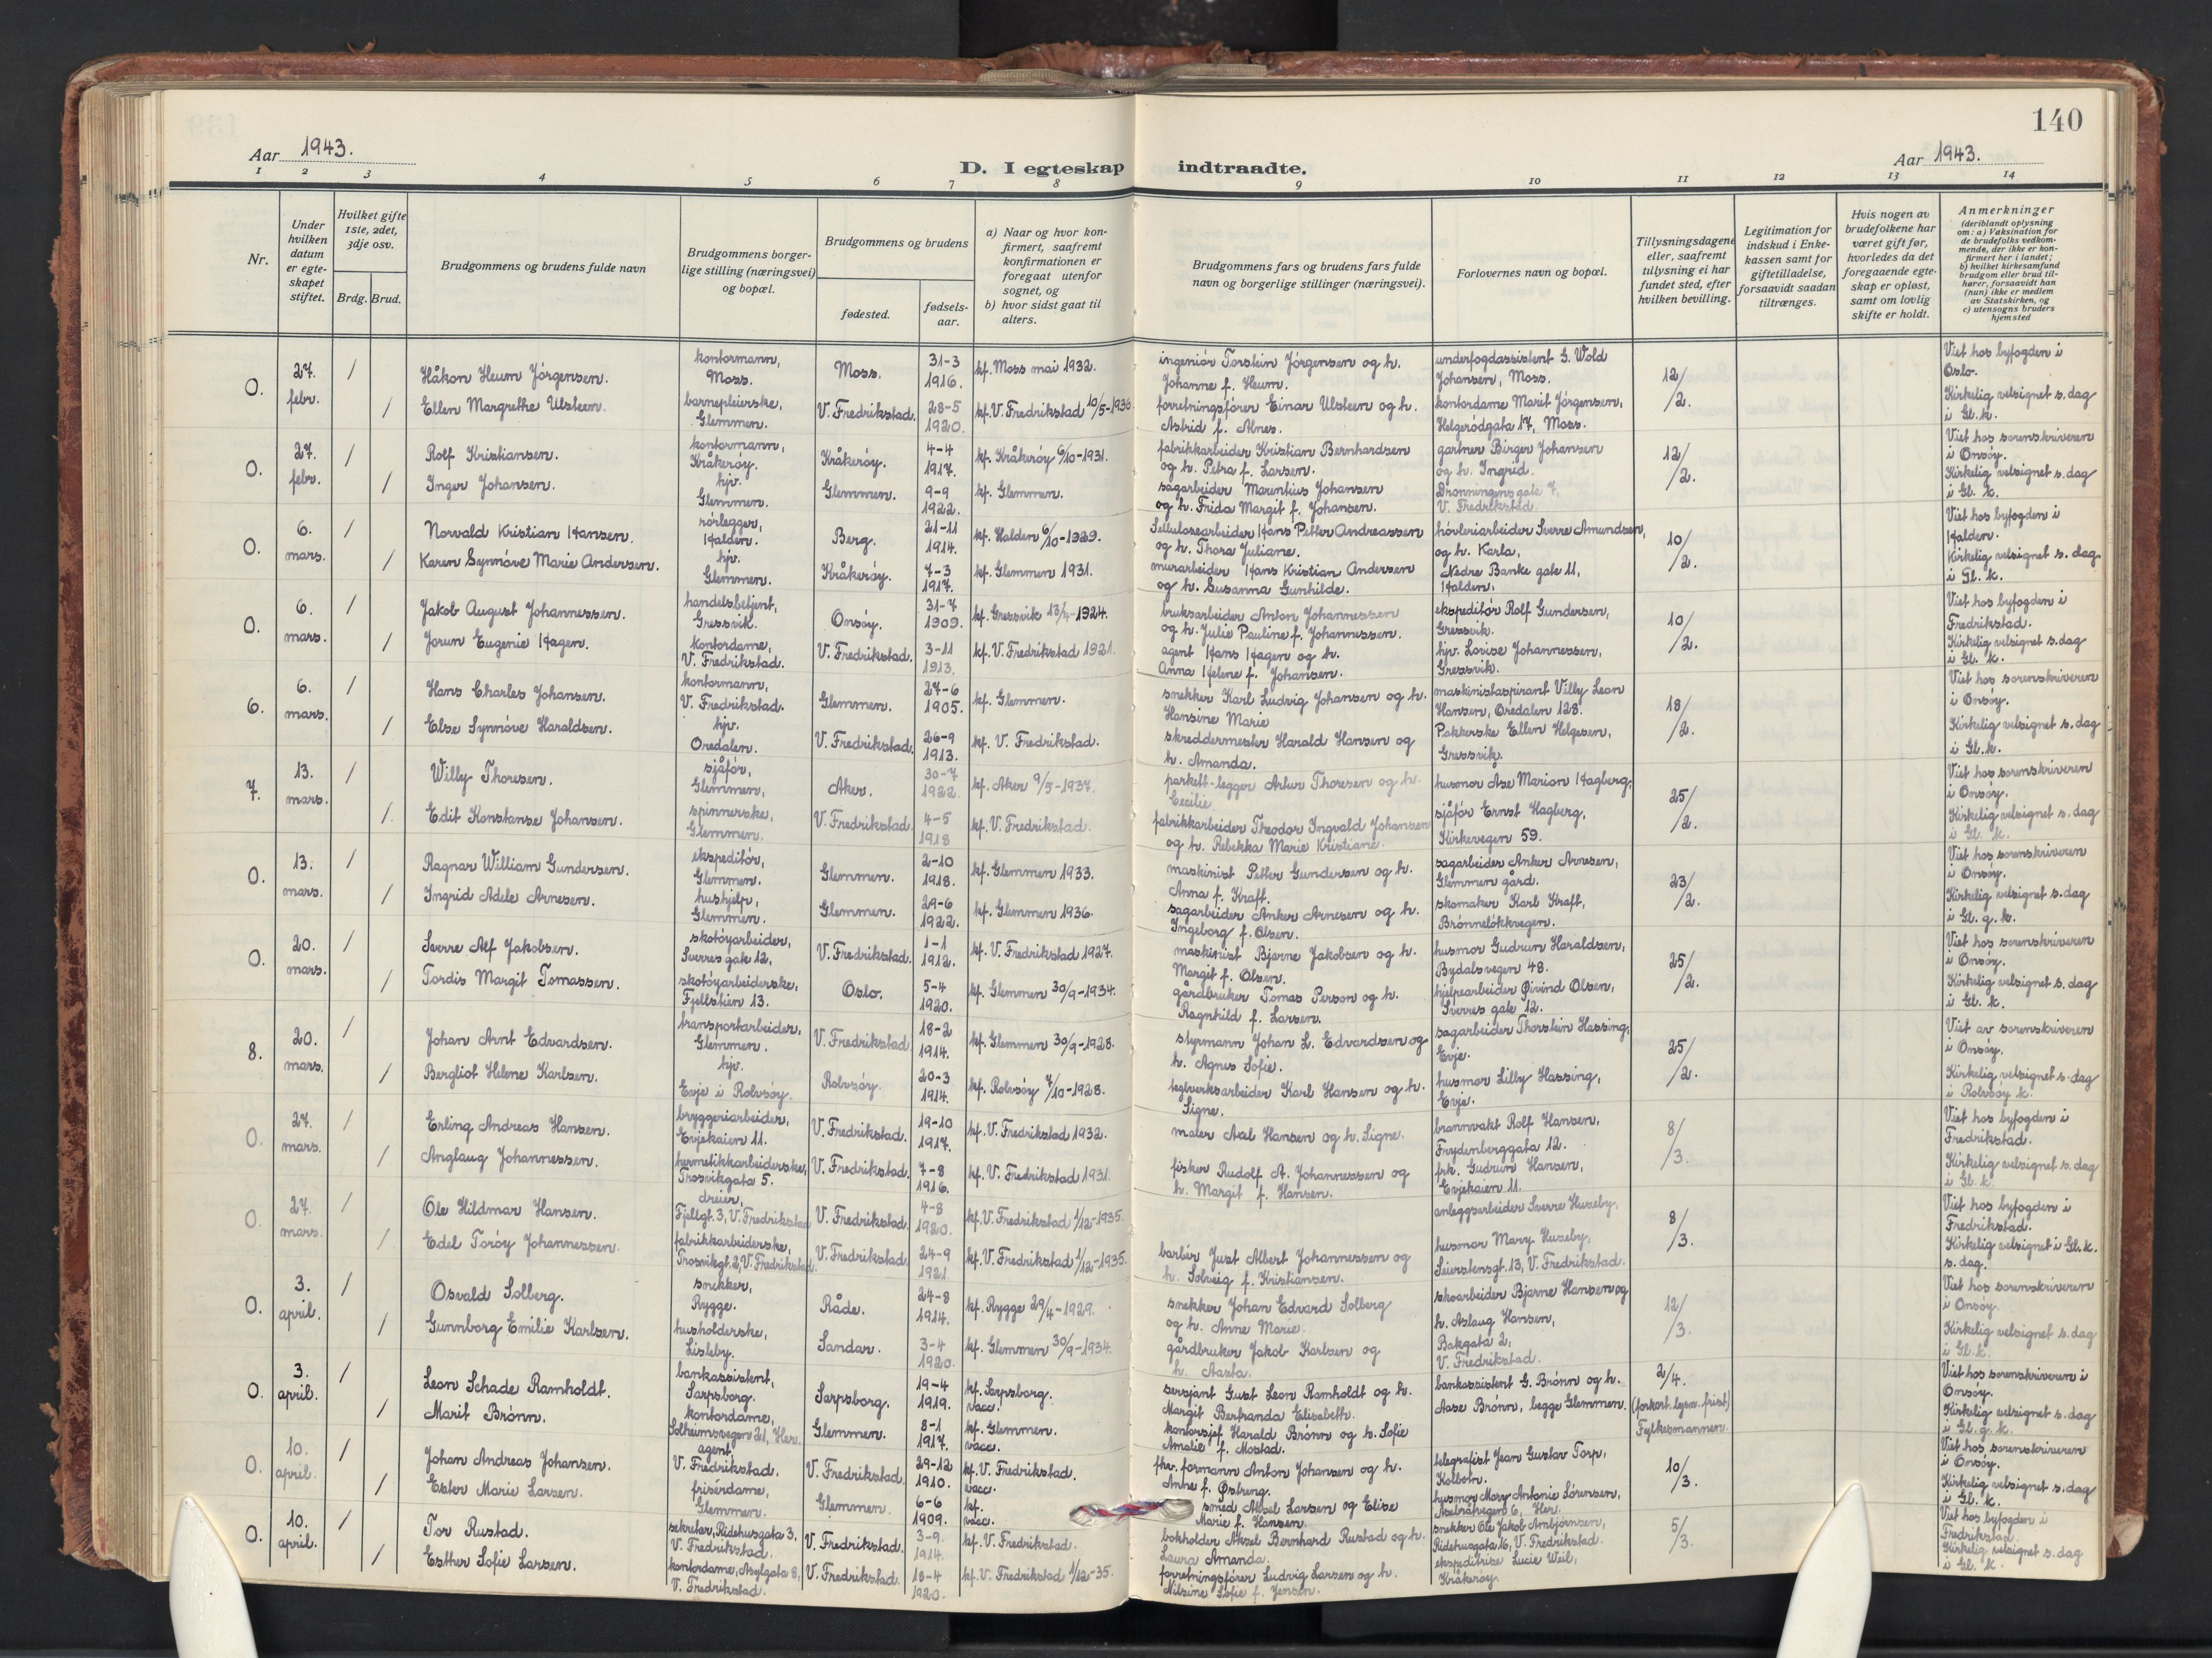 140
Aar 1943.
Aar 1943.
D. I egteskap indtraadte.
1 2 3 4 5 6 7 8 9 10 11 12 13 14
Nr.
Under hvilken datum er egteskapet stiftet.
Hvilket gifte 1ste, 2det, 3dje osv.
Brdg. Brud.
Brudgommens og brudens fulde navn
Brudgommens borgerlige stilling (næringsvei) og bopæl.
Brudgommens og brudens
fødested.
fødselsaar.
a) Naar og hvor konfirmert, saafremt konfirmationen er foregaat utenfor sognet, og
b) hvor sidst gaat til alters.
Brudgommens fars og brudens fars fulde navn og borgerlige stillinger (næringsvei).
Forlovernes navn og bopæl.
Tillysningsdagene eller, saafremt tillysning ei har fundet sted, efter hvilken bevilling.
Legitimation for indskud i Enkekassen samt for giftetilladelse, forsaavidt saadan tiltrænges.
Hvis nogen av brudefolkene har været gift før, hvorledes da det foregaaende egteskap er opløst, samt om lovlig skifte er holdt.
Anmerkninger (deriblandt oplysning om: a) Vaksination for de brudefolks vedkommende, der ikke er konfirmert her i landet; b) hvilket kirkesamfund brudgom eller brud tilhører, forsaavidt han (hun) ikke er medlem av Statskirken, og c) utensogns bruders hjemsted
0. 27. febr. / Håkon Heum Jörgensen. kontormann, Moss. Moss. 31-3 1916. kf. Moss mai 1932. ingeniör Torstein Jörgensen og h. Johanne f. Heum. underfogdassistent G. Wold Johansen, Moss. 12/2. Viet hos byfogden i Oslo.
/ Ellen Margrethe Ulsteen. barnepleierske, Glemmen. V. Fredrikstad. 28-5 1920. kf. V. Fredrikstad 10/5-1936 forretningsfører Einar Ulsteen og h. Astrid f. Alnes. kontordame Marit Jörgensen, Helgerödgata 17, Moss. Kirkelig velsignet s. dag i Gl. k.
0. 27. febr. / Rolf Kristiansen. kontormann, Kråkeröy. Kråkeröy. 4-4 1917. kf. Kråkeröy 6/10-1931. fabrikkarbeider Kristian Bernhardsen og h. Petra f. Larsen. gartner Birger Johansen og h. Ingrid. 12/2. Viet hos sorenskriveren i Onsöy.
/ Inger Johansen. hjv. Glemmen. Glemmen. 9-9 1922. kf. Glemmen. sagarbeider Marentius Johansen og h. Frida Margit f. Johansen. Dronningensgate 7, V. Fredrikstad. Kirkelig velsignet s. dag i Gl. k.
0. 6. mars. / Norvald Kristian Hansen. rörlegger, Halden. Berg. 21-11 1914. kf. Halden 6/10-1929. Sellulosearbeider Hans Petter Andreassen og h. Thora Juliane. hövleriarbeider Sverre Amundsen, og h. Karla, 10/2. Viet hos byfogden i Halden.
/ Karen Synnöve Marie Andersen. hjv. Glemmen. Kråkeröy. 7-3 1917. kf. Glemmen 1931. murarbeider Hans Kristian Andersen og h. Susanna Gunhilde. Nedre Banke gate 11, Halden. Kirkelig velsignet s. dag i Gl. k.
0. 6. mars. / Jakob August Johannessen. handelsbetjent, Gressvik. Onsöy. 31-7 1909. kf. Gressvik 13/4-1924. bruksarbeider Anton Johannessen og h. Julie Pauline f. Johannessen. ekspeditör Rolf Gundersen, Gressvik. 10/2. Viet hos byfogden i Fredrikstad.
/ Jorun Eugenie Hagen. kontordame, V. Fredrikstad. V. Fredrikstad. 3-11 1913. kf. V. Fredrikstad 1921. agent Hans Hagen og h. Anna Helene f. Johansen. hjv. Lovise Johannessen, Gressvik. Kirkelig velsignet s. dag i Gl. k.
6. 6. mars. / Hans Charles Johansen. kontormann, V. Fredrikstad. Glemmen. 27-6 1905. kf. Glemmen. snekker Karl Ludvig Johansen og h. Hansine Marie maskinistaspirant Villy Leon Hansen, Oredalen 128. 18/2. Viet hos sorenskriveren i Onsöy.
/ Else Synnöve Haraldsen. hjv. Oredalen. V. Fredrikstad. 26-9 1913. kf. V. Fredrikstad. skreddermester Harald Hansen og h. Amanda. Pakkerske Ellen Helgesen, Gressvik. Kirkelig velsignet s. dag i Gl. k.
7. 13. mars. / Willy Thoresen. sjåför, Glemmen, Aker. 30-7 1922. kf. Aker 9/5-1937. parkett-legger Artur Thoresen og h. Cecilie. husmor Åse Marion Hagberg, 25/2. Viet hos sorenskriveren i Onsöy.
/ Edit Konstanse Johansen. spinnerske, Glemmen. V. Fredrikstad. 4-5 1918 kf. V. Fredrikstad. fabrikkarbeider Theodor Ingvald Johansen og h. Rebekka Marie Kristiane. sjåför Ernst Hagberg, Kirkevegen 59. Kirkelig velsignet s. dag i Gl. k.
0. 13. mars. / Ragnar William Gundersen. ekspeditör, Glemmen. Glemmen. 2-10 1918. kf. Glemmen 1933. maskinist Petter Gundersen og h. Anna f. Kraft. sagarbeider Anker Arnesen, Glemmen gård. 23/2. Viet hos sorenskriveren i Onsöy.
/ Ingrid Adele Arnesen. hushjelp, Glemmen. Glemmen. 29-6 1922. kf. Glemmen 1936. sagarbeider Anker Arnesen og h. Ingeborg f. Olsen. skomaker Karl Kraft, Brönnelökkvegen. Kirkelig velsignet s. dag i Gl. g. k.
0. 20. mars. / Sverre Alf Jakobsen. skotöyarbeider, Sverres gate 12, V. Fredrikstad. 1-1 1912. kf. V. Fredrikstad 1927. maskinist Bjarne Jakobsen og h. Margit f. Olsen. husmor Gudrun Haraldsen, Bydalsvegen 48. 25/2. Viet hos sorenskriveren i Onsöy.
/ Tordis Margit Tomassen. skotöyarbeiderske, Fjellstien 13. Oslo. 5-4 1920. kf. Glemmen 30/9-1934. gårdbruker Tomas Person og h. Ragnhild f. Larsen. hjelpearbeider Øivind Olsen, Sverres gate 12. Kirkelig velsignet s. dag i Gl. k.
8. 20. mars. / Johan Arnt Edvardsen. transportarbeider, Glemmen. V. Fredrikstad 18-2 1914. kf. Glemmen 30/9-1928. styrmann Johan L. Edvardsen og h. Agnes Sofie. sagarbeider Thorstein Hassing, Evje. 25/2. Viet av sorenskriveren i Onsöy.
/ Bergliot Helene Karlsen. hjv. Evje i Rolvsöy. Rolvsöy. 20-3 1914. kf. Rolvsöy 7/10-1928. teglverksarbeider Karl Hansen og h. Signe. husmor Lilly Hassing, Evje. Kirkelig velsignet s. dag i Rolvsöy k.
0. 27. mars. / Erling Andreas Hansen. bryggeriarbeider, Evjekaien 11. V. Fredrikstad. 19-10 1917. kf. V. Fredrikstad 1932. maler Axel Hansen og h. Signe. brannvakt Rolf Hansen, Frydenberggata 12. 8/3. Viet hos byfogden i Fredrikstad.
/ Anglaug Johannessen. hermetikkarbeiderske, Trosvikgata 5. V. Fredrikstad. 7-8 1916. kf. V. Fredrikstad 1931. fisker Rudolf A. Johannessen og h. Margit f. Hansen. frk. Gudrun Hansen, Evjekaien 11. Kirkelig velsignet s. dag i Gl. k.
0. 27. mars. / Ole Hildmar Hansen. dreier, Fjellgt. 3, V. Fredrikstad V. Fredrikstad. 4-8 1920. kf. V. Fredrikstad 1/12-1935. anleggsarbeider Sverre Huseby, 8/3. Viet hos byfogden i Fredrikstad.
/ Edel Toröy Johannessen. fabrikkarbeiderske, Trosvikgt. 2, V. Fredrikstad. V. Fredrikstad. 24-9 1921. kf. V. Fredrikstad 1/12-1935. barbér Just Albert Johannessen og h. Solveig f. Kristiansen. husmor Mary Huseby, Seierstensgt. 13, V. Fredrikstad. Kirkelig velsignet i Gl. k. s. dag.
0. 3. april. / Osvald Solberg. snekker, Rygge. Råde. 24-8 1914. kf. Rygge 29/4-1929. snekker Johan Edvard Solberg og h. Anne Marie. skoarbeider Bjarne Hansen og h. Aslaug Hansen, 12/3. Viet hos sorenskriveren i Onsøy.
/ Gunnborg Emilie Karlsen. husholderske, Lisleby. Sandar. 3-4 1920. kf. Glemmen 30/9-1934. gårdbruker Jakob Karlsen og h. Aasta. Bakgata 2, V. Fredrikstad. Kirkelig velsignet s. dag i Gl. k.
0. 3. april. / Leon Schade Ramholdt. bankassistent, Sarpsborg. Sarpsborg. 19-4 1919. kf. Sarpsborg. vacc. sersjant Gust Leon Ramholdt og h. Margit Bertranda Elisabeth. bankassistent G. Brönn og h. Aase Brönn, begge Glemmen. 2/4. (forkort. lysn. frist) Fylkesmannen. Viet hos sorenskriveren i Onsöy.
/ Marit Brönn. kontordame, Solheimsvegen 21, Her. Glemmen. 8-1 1917. kf. Glemmen. vacc. kontorsjef Harald Brönn og h. Sofie Amalie f. Mostad. Kirkelig velsignet s. dag i Gl. g. k.
0. 10. april. / Johan Andreas Johansen. agent, V. Fredrikstad. V. Fredrikstad. 29-12 1910. kf. V. Fredrikstad. vacc. fhv. formann Anton Johansen og h. Anne f. Østreng. telegrafist Jean Gustav Torp, Kolbotn. 10/3. Viet hos sorenskriveren i Onsöy.
/ Ester Marie Larsen. frisérdame, Glemmen. Glemmen. 6-6 1909. kf. vacc. smed Aksel Larsen og Elise Marie f. Hansen. husmor Mary Antonie Sörensen, 6, Her. Kirkelig velsignet s. dag i Gl. k.
0. 10. april. / Tor Rustad. sekretær, Ridehusgata 3, V. Fredrikstad. V. Fredrikstad. 3-9. 1914. kf. V. Fredrikstad. bokholder Aksel Bernhard Rustad og h. Laura Amanda. snekker Ole Jakob Ambjörnsen, Ridehusgata 16, V. Fredrikstad. 5/3. Viet hos byfogden i Fredrikstad.
/ Esther Sofie Larsen. kontordame, Asylgata 8, V. Fredrikstad. V. Fredrikstad. 18-4 1920. kf. V. Fredrikstad 1/12-35. forretningsfører Ludvig Larsen og h. Nilsine Sofie f. Jensen. ekspeditrise Lucie Weil, Kråkeröy. Kirkelig velsignet s. dag i Gl. k.